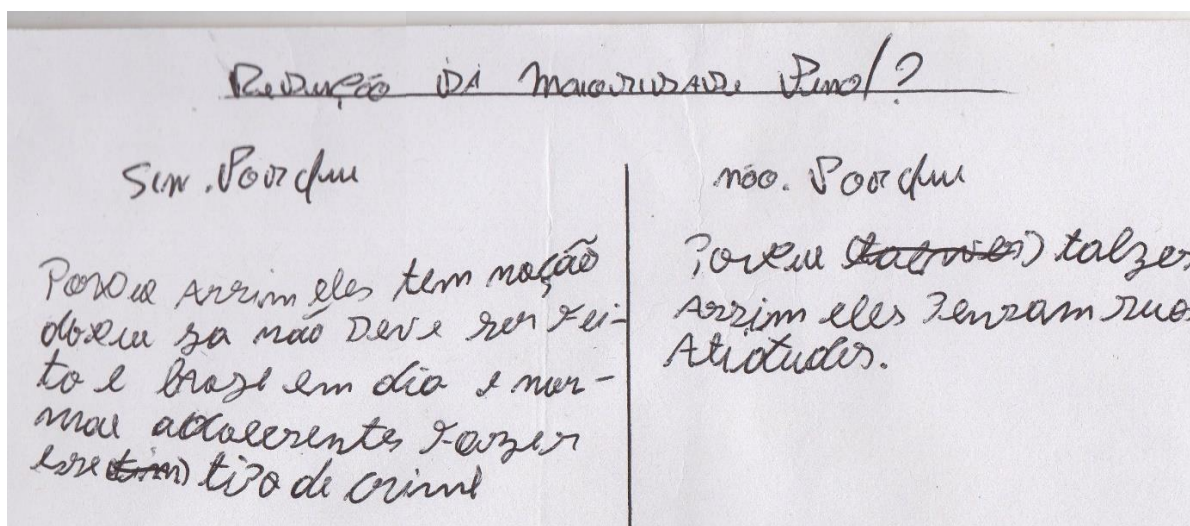 Redução da maioridade Penal?
Sim. Porque
Porque assim eles tem noção
doque ja não Deve ser fei-
to e em dia e nor-
mal adolecentes fazer
esse tipo de crime
não. Porque
Porque talzes
Assim eles Pensam suas
Atitudes.